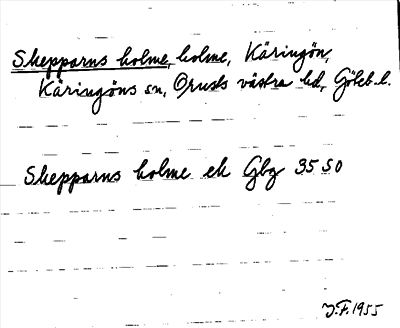 Skepparns holme, holme, Käringön,
Käringöns sn, Orusts västra hd, Göteb. l.
Skepparns holme ek Gbg 35 SO
J.F. 1955